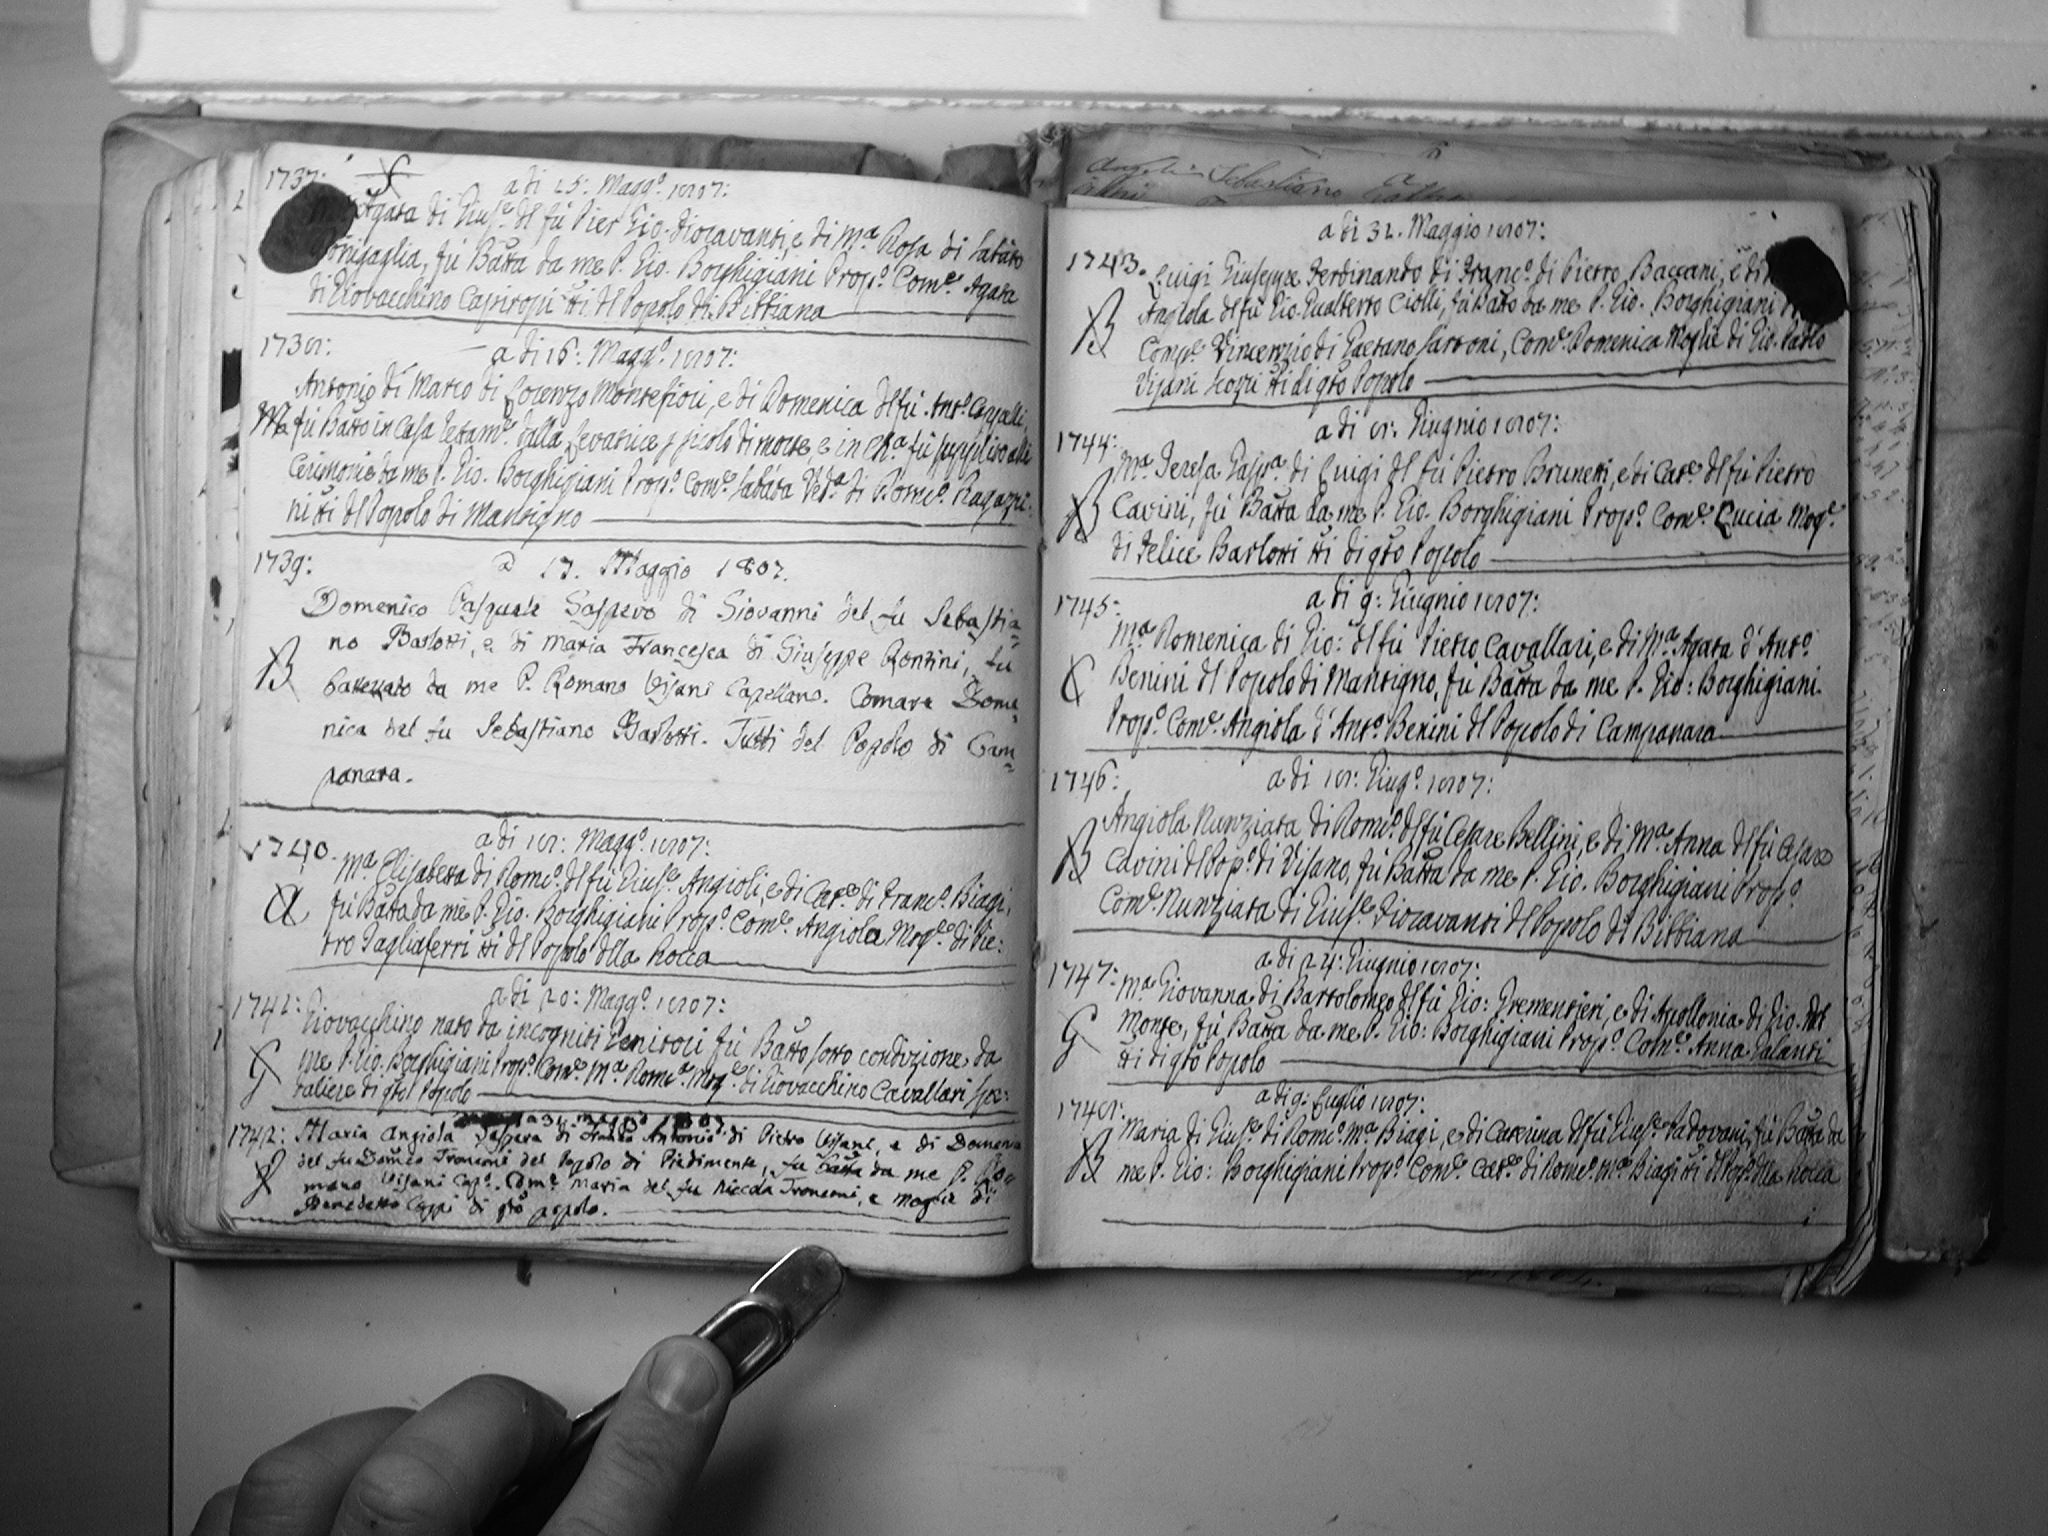 1737:
a di 15: Magg.º 1807:
Agata di Gius.e del fù Pier Gio. Fioravanti, e di M.a Rosa di Sabato
fù Batta da me P. Gio. Borghigiani Prop.º Com.e Agata
di Giovacchino tti del Popolo di Bibbiana
1738:
a di 16: Magg.º 1807:
Antonio di Marco di Lorenzo Montefiori, e di Domenica del fù Ant.º
fù Batto in Casa dalla Levatrice p. picolo di morte, e in Ch.a fù supplito alle
Cerimonie da me P. Gio. Borghigiani Prop.º Com.e Sabata Ved.a di Dom.co Ragazzi:
ni tti del Popolo di Mantigno
1739:
a 17. Maggio 1807.
Domenico Pasquale Gaspero di Giovanni del fu Sebastia=
no Barlotti, e di Maria Francesca di Giuseppe Rontini, fu
B battezzato da me P. Romano Visani Capellano. Comare Dome=
nica del fu Sebastiano Barlotti. Tutti del Popolo di Cam=
panara.
1740.
a di 18: Magg.º 1807:
M.a Elisabetta di Dom.co del fù Gius.e Angioli, e di Cat.e di Franc.º Biagi,
A fù Batta da me P. Gio. Borghigiani Prop.º Com.e Angiola Mog.e di Pie:
tro Tagliaferri tti del Popolo della Rocca
1741:
a di 20: Magg.º 1807:
Giovacchino nato da incogniti Genitori fù Batto sotto condizione da
G me P. Gio. Borghigiani Prop.º Com.e M.a Dom.ca Mog.e di Giovacchino Cavallari Spe:
daliere di qto Popolo
a 31. maggio 1807
1742: Maria Angiola Gaspera di Antonio di Pietro Visani, e di Domenica
del fu Domco Tronconi del Popolo di Piedimonte, fu batta da me P. Ro=
mano Visani Cap. Com.e Maria del fu Niccola Tronconi, e moglie di
Benedetto Ceppi di qto popolo.
a di 31. Maggio 1807:
1743. Luigi Giuseppe Ferdinando di Franc.º di Pietro Baccani, e di
B Angiola del fù Gio. Gualberto Ciolli, fù Batto da me P. Gio. Borghigiani
Comp.e Vincenzio di Gaetano Sartoni, Com.e Domenica Moglie di Gio. Paolo
Visani tti di qto Popolo
a di 8: Giugnio 1807:
1744:
M.a Teresa Gasp.a di Luigi del fù Pietro Brunetti, e di Cat.e del fù Pietro
B Cavini, fù Batta da me P. Gio. Borghigiani Prop.º Com.e Lucia Mog.e
di Felice Barlotti tti di qto Popolo
a di 9: Giugnio 1807:
1745:
M.a Domenica di Gio: del fù Pietro Cavallari, e di M.a Agata d'Ant.º
C Benini del Popolo di Mantigno, fù Batta da me P. Gio: Borghigiani
Prop.º Com.e Angiola d'Ant.º Benini del Popolo di Campanara
a di 18: Giug.º 1807:
1746:
Angiola Nunziata di Dom.co del fù Cesare Bellini, e di M.a Anna del fù Cesare
B Cavini del Pop.º di Visano, fù Batta da me P. Gio. Borghigiani Prop.º
Com.e Nunziata di Gius.e Fioravanti del Popolo di Bibbiana
a di 24: Giugnio 1807:
1747:
M.a Giovanna di Bartolomeo del fù Gio: Grementieri, e di Apollonia di Gio. del
G Monte, fù Batta da me P. Gio: Borghigiani Prop.º Com.e Anna Galanti
tti di qto Popolo
a di 9: Luglio 1807:
1748:
Maria di Gius.e di Dom.co M.a Biagi, e di Caterina del fù Gius.e Padovani, fù Batta da
B me P. Gio: Borghigiani Prop.º Com.e Cat.e di Dom.co M.a Biagi tti del Pop.º della Rocca